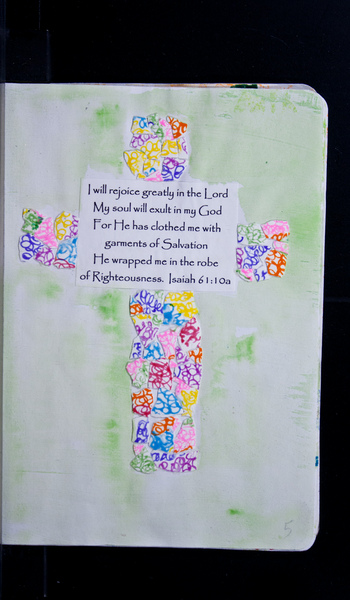 I will rejoice greatly in the Lord
My soul will exult in my God
For He has clothed me with
garments of Salvation
He wrapped me in the robe
of Righteousness. Isaiah 61:10a
5